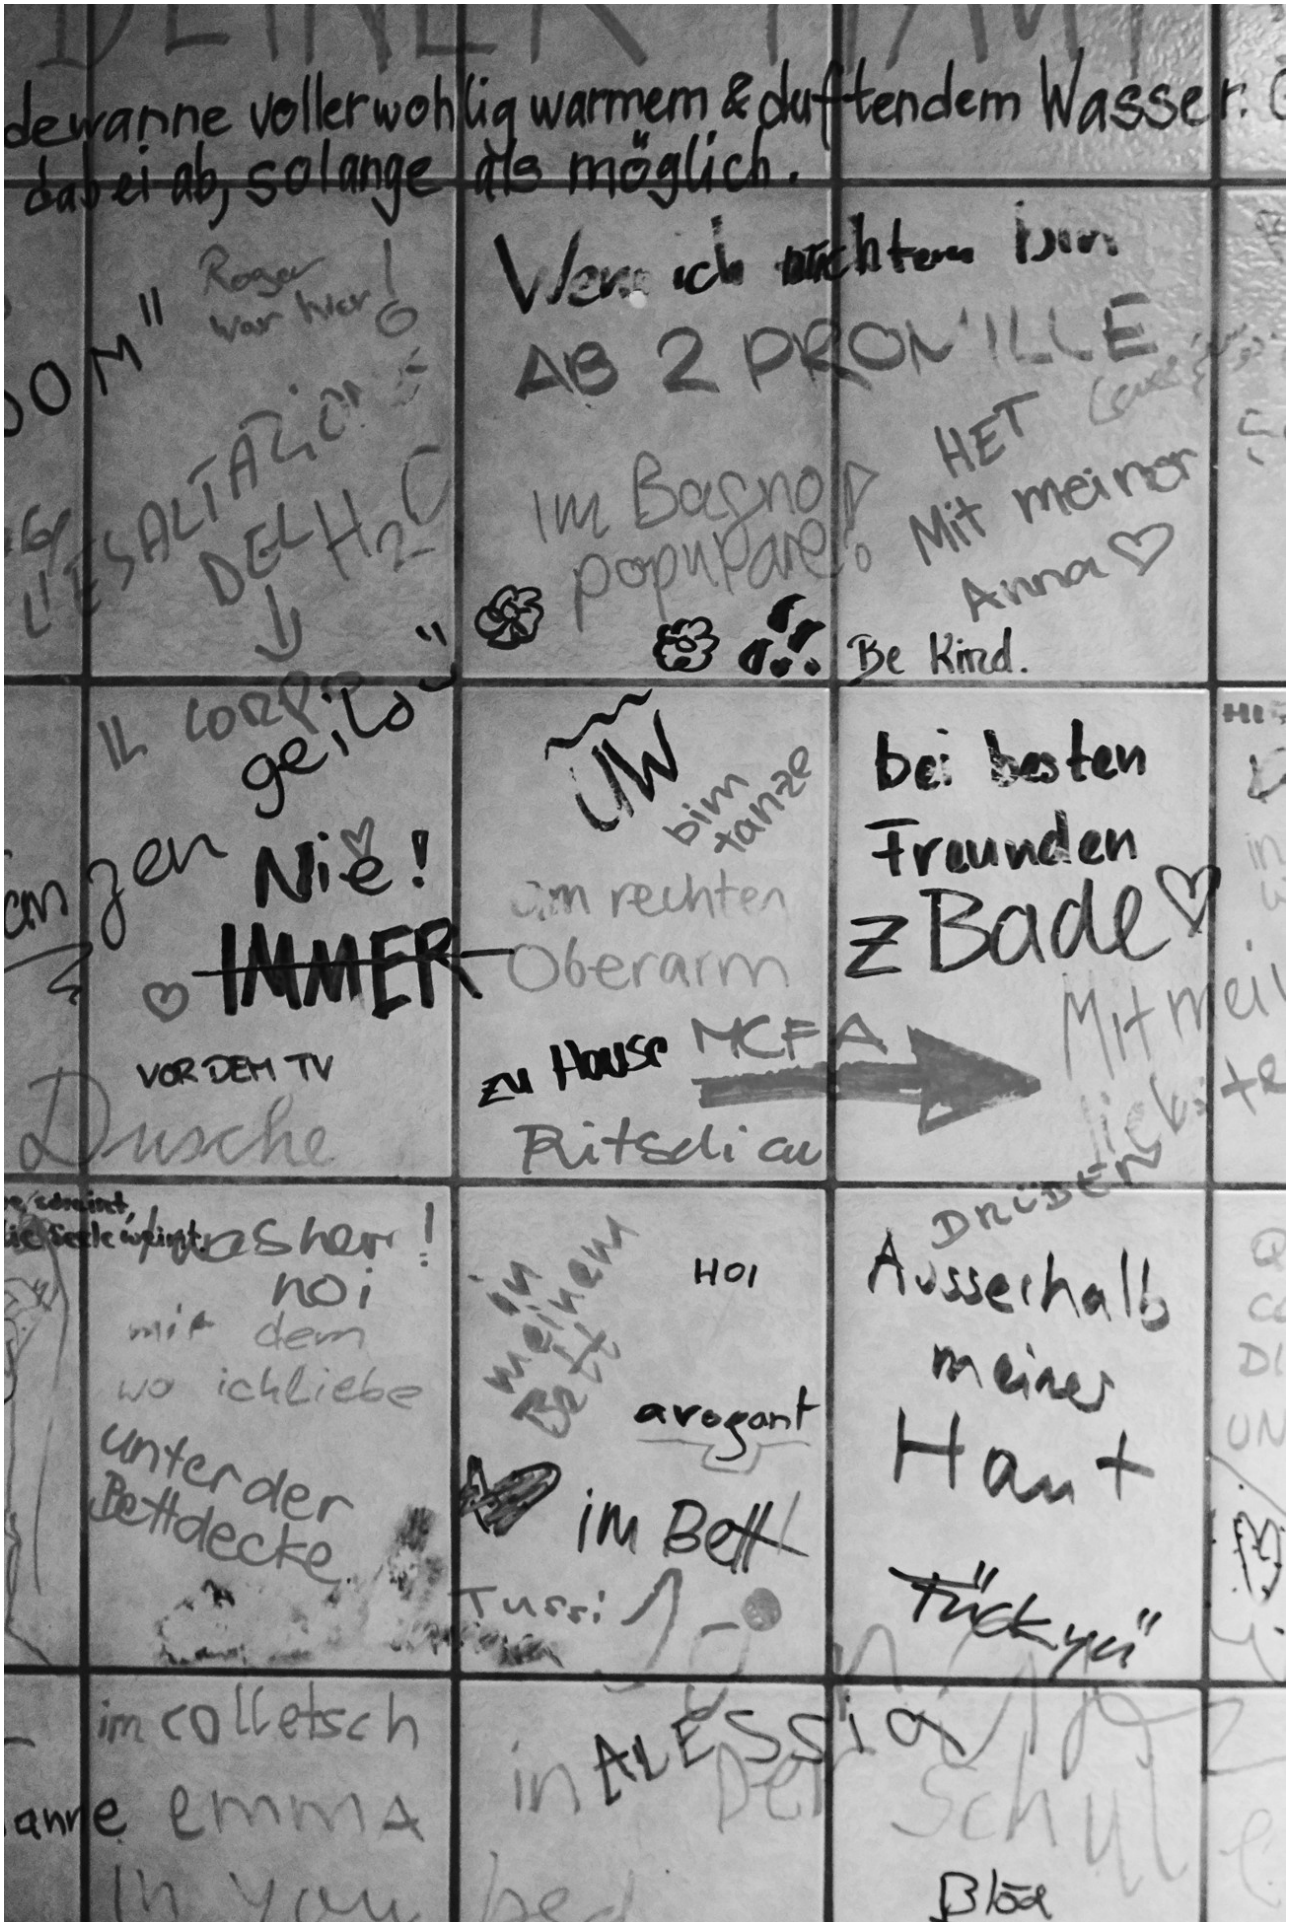 DEINER
dewanne voller wohlig warmem & duftendem Wasser.
dabei ab, solange als möglich.
Roger
war hier!
Wenn ich nüchtern bin
AB 2 PROMILLE
OOM"
L'ESALTAZIONE
DEL H2O
IL CORPO
Im Bagno
popupare!
HET
Mit meiner
Anna
Be Kind.
geil
UW
bim
tanze
bei besten
Freunden
z Bade
anzen
Nie!
IMMER
am rechten
Oberarm
VOR DEM TV
Dusche
zu Hause
MCFA
Ritschi au
Mit mei
DRÜBEN
die Seele weint.
noi
mit dem
wo ich liebe
unter der
Bettdecke
in
meinem
Bett
HOI
arogant
im Bett
Tussi
Ausserhalb
meiner
Haut
"Fück yü"
im colletsch
emma
in your bed
ALESSIA
in Der Schule
anne
Blöd